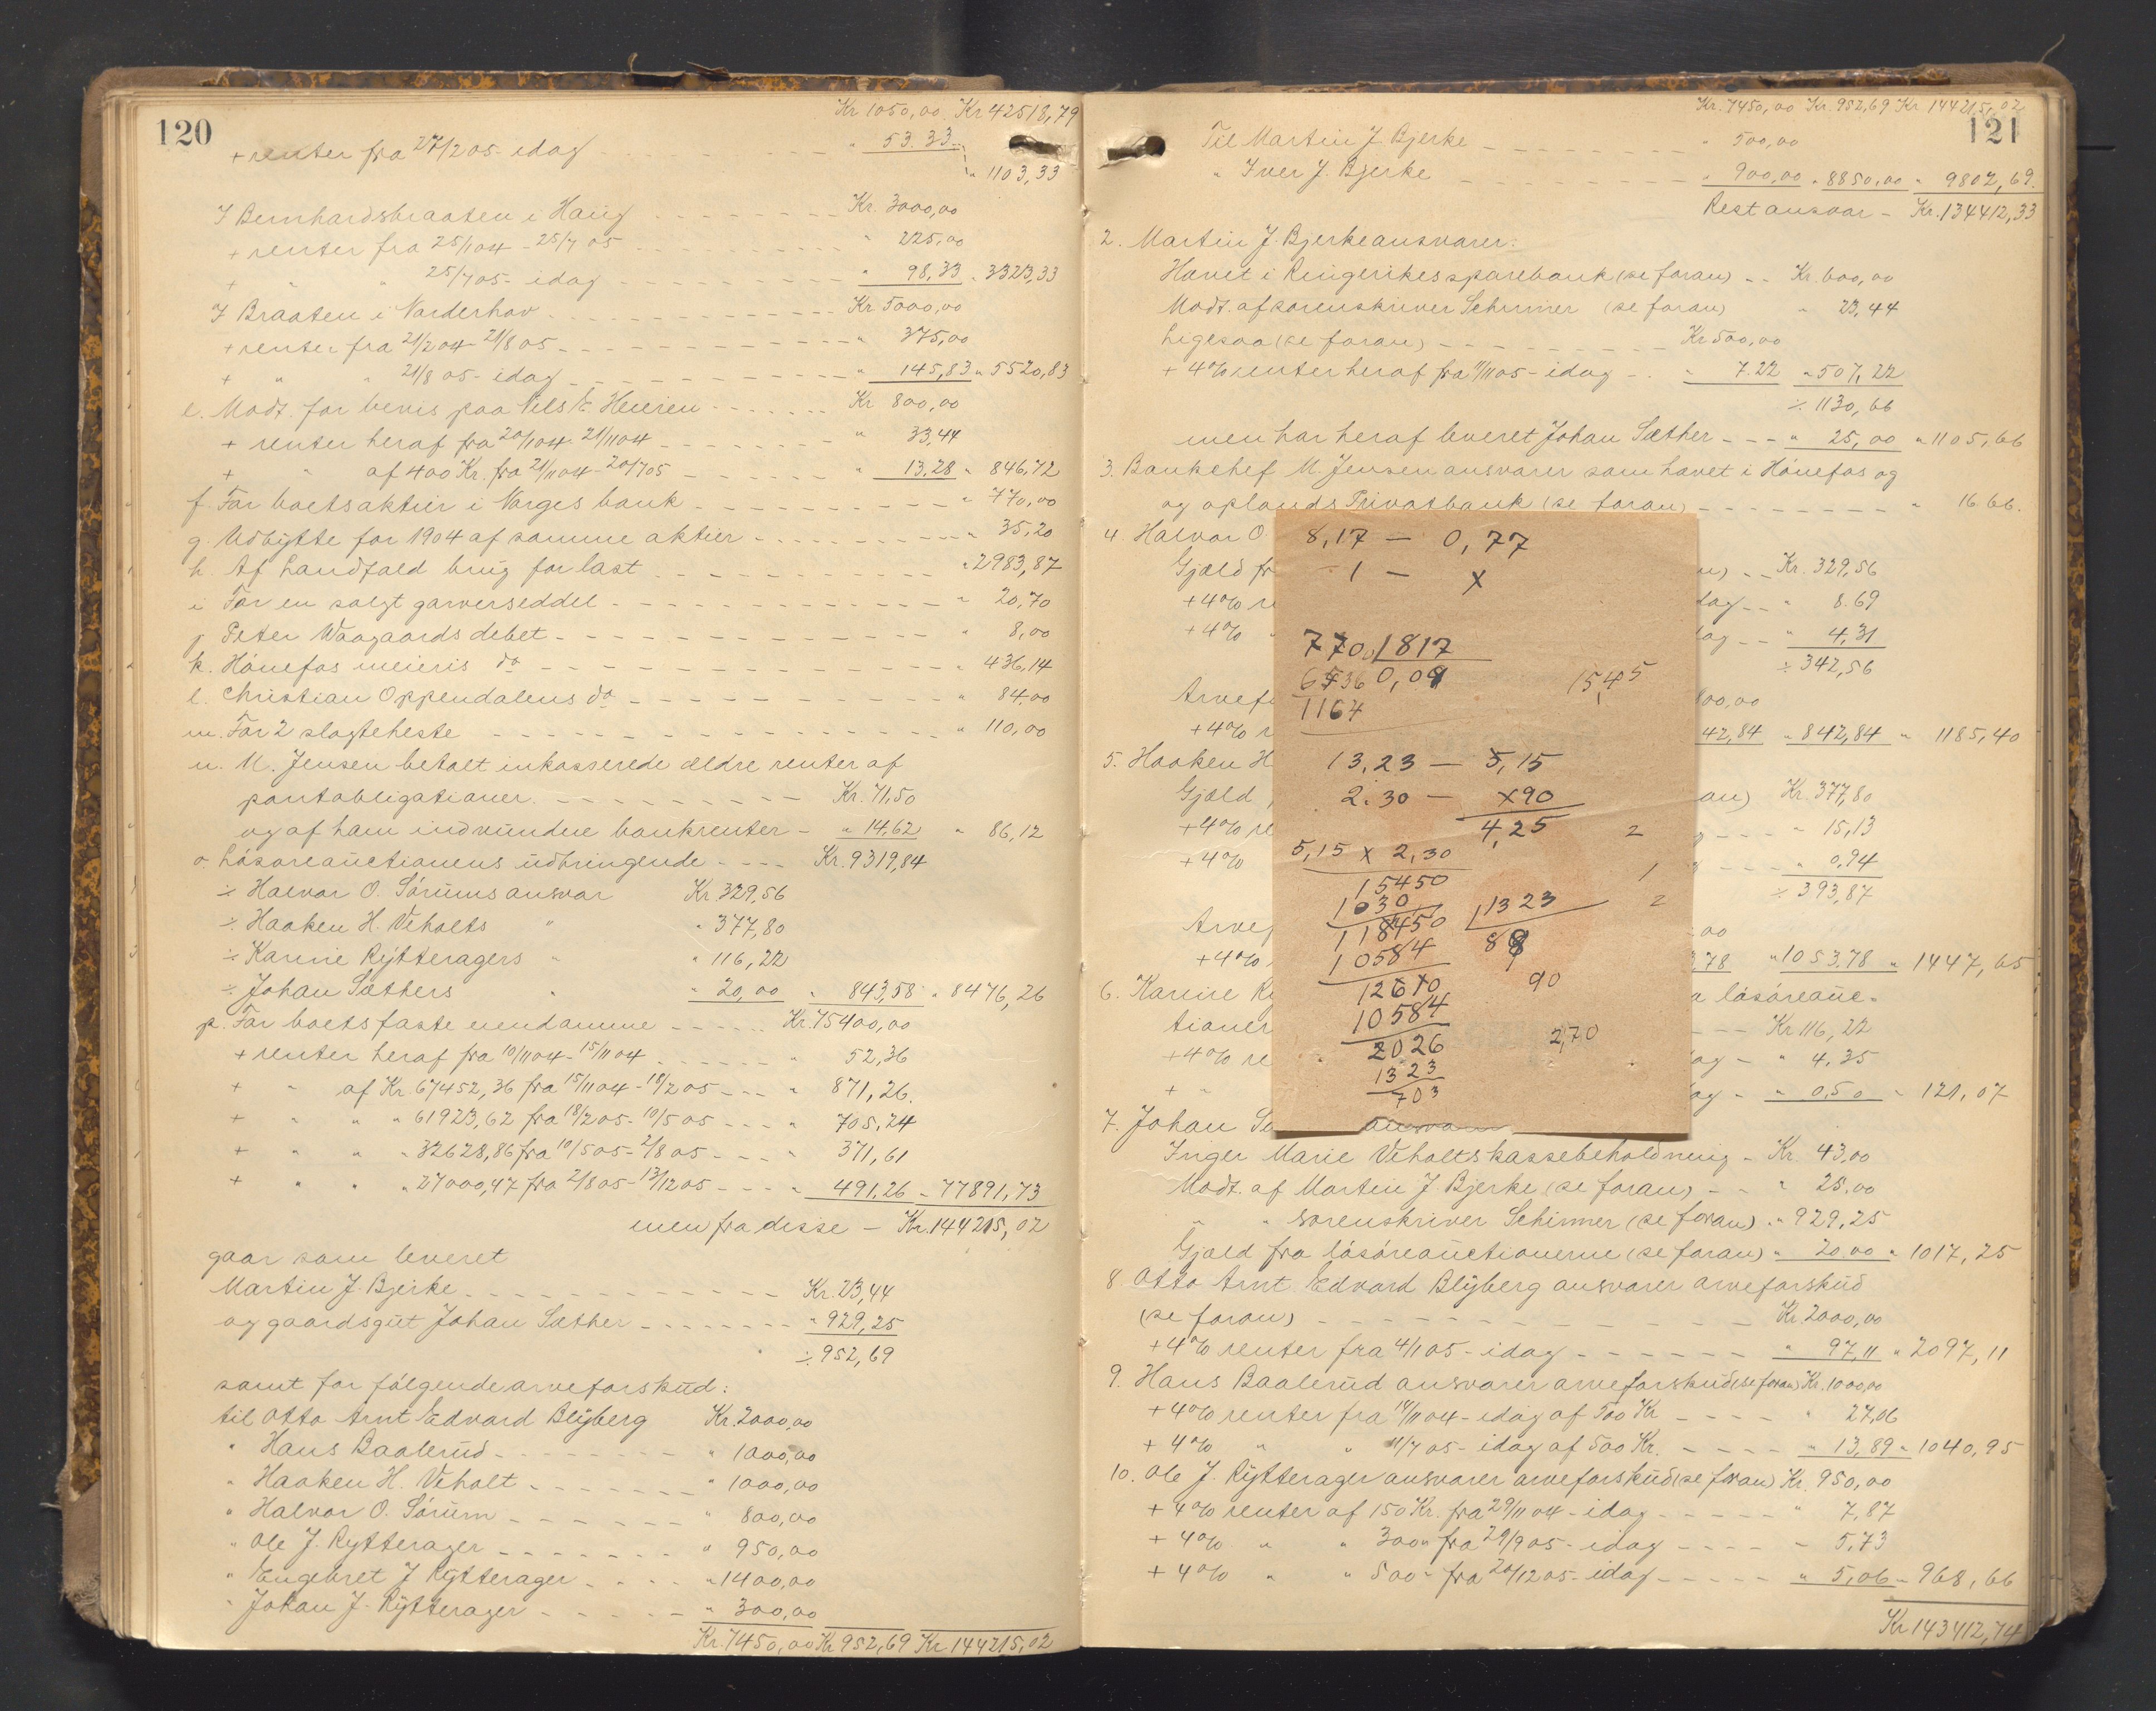 120
Kr 1050,00 Kr 42518,79
+ renter fra 27/2 05 - idag " 53.33
" 1103,33
I Bernhardsbraaten i Haug Kr. 3000,00
+ renter fra 25/1 04 - 25/7 05 " 225,00
+ " " 25/7 05 - idag " 98,33 " 3323,33
I Braaten i Norderhov Kr 5000,00
+ renter fra 21/2 04 - 21/8 05 " 375,00
+ " " 21/8 05 - idag " 145,83 " 5520,83
e. Modt. for bevis paa Nils E. Heieren Kr 800,00
+ renter heraf fra 20/1 04 - 21/11 04 " 33,44
+ " af 400 Kr. fra 21/11 04 - 20/7 05 " 13,28 " 846,72
f. For boets aktier i Norges bank " 770,00
g. Udbytte for 1904 af samme aktier " 35,20
h. Af Landfald brug for last " 2983,87
i For en solgt garverseddel " 20,70
j Peter Waagaards debet " 8,00
k. Hónefos meieris do " 436,14
l. Christian Oppendalens do " 84,00
m. For 2 slagteheste " 110,00
n. M. Jensen betalt inkasserede ældre renter af
pantobligationer Kr. 71,50
og af ham indvundne bankrenter " 14,62 " 86,12
o. Lósóreauctionens udbringende Kr. 9319,84
÷ Halvor O. Sórums ansvar Kr. 329,56
÷ Haaken H. Veholts " " 377,80
÷ Karine Rytteragers " " 116,22
÷ Johan Sæthers " " 20,00 " 843,58 " 8476,26
p. For boets faste eiendomme Kr. 75400,00
+ renter heraf fra 10/11 04 - 15/11 04 " 52,36
+ " af Kr. 67452,36 fra 15/11 04 - 18/2 05 " 871,26.
+ " " " 61923,62 fra 18/2 05 - 10/5 05 " 705,24
+ " " " 32628,86 fra 10/5 05 - 2/8 05 " 371,61
+ " " " 27000,47 fra 2/8 05 - 13/12 05 " 491,26 " 77891,73
men fra disse - Kr. 144215,02
gaar som leveret
Martin J. Bjerke Kr. 23,44
og gaardsgut Johan Sæther " 929,25
÷ 952,69
samt for fólgende arveforskud:
til Otto Arnt Edvard Blyberg Kr. 2000,00
" Hans Baalerud " 1000,00
" Haaken H. Veholt " 1000,00
" Halvor O. Sórum " 800,00
" Ole J. Rytterager " 950,00
" Engebret J Rytterager " 1400,00
" Johan J. Rytterager " 300,00
Kr. 7450,00 Kr 952,69 Kr 144215,02
121
Kr. 7450,00 Kr. 952,69 Kr 144215,02
Til Martin J. Bjerke " 500,00
" Iver J. Bjerke " 900,00 " 8850,00 " 9802,69.
Rest ansvar - Kr. 134412,33
2. Martin J. Bjerke ansvarer:
Hævet i Ringerikes sparebank (se foran) Kr. 600,00
Modt. af sorenskriver Schirmer (se foran) " 23,44
Ligesaa (se foran) Kr 500,00
+ 4% renter heraf fra 11/11 05 - idag " 7.22 " 507,22
÷ 1130,66
men har heraf leveret Johan Sæther " 25,00 " 1105,66
3. Bankchef M. Jensen ansvarer som hævet i Hónefos og
og oplands Privatbank (se foran) " 16.66.
4. Halvor O.
Gjæld fr Kr. 329,56
+ 4% re dag " 8.69
+ 4% " ag " 4,31
÷ 342,56
Arvef 800,00
+ 4% r 42,84 " 842,84 " 1185,40
5. Haaken H
Gjæld an) Kr. 377,80
+ 4% re " 15,13
+ 4% " 0,94
÷ 393,87
Arvef 00
+ 4% 3,78 " 1053,78 " 1447,65
6. Karine Ry a lósóreauc-
tioner Kr 116,22
+ 4% re ag " 4,35
+ " ag " 0,50 " 121,07
7. Johan Sæ ansvarer
Inger Marie Veholts kassebeholdning - Kr. 43,00
Modt. af Martin J. Bjerke (se foran) " 25,00
" " sorenskriver Schirmer (se foran) " 929,25
Gjæld fra lósóreauctionerne (se foran) " 20.00 " 1017,25
8 Otto Arnt Edvard Blyberg ansvarer arveforskud
(se foran) Kr. 2000,00
+ 4% renter fra 4/1 05 - idag " 97,11 " 2097,11
9. Hans Baalerud ansvarer arveforskud (se foran) Kr. 1000,00
+ 4% renter fra 14/11 04 - idag af 500 Kr " 27,06
+ 4% " " 11/7 05 - idag af 500 Kr. " 13,89 " 1040,95
10. Ole J. Rytterager ansvarer arveforskud (se foran) Kr. 950,00
+ 4% renter af 150 Kr. fra 29/11 04 - idag " 7,87
+ 4% " " 300 " fra 29/9 05 - idag " 5,73
+ 4% " " 500 " fra 20/12 05 - idag " 5,06 " 968,66
Kr 143412,74
8,17 - 0,77
1 - x
770,0 | 817
6536 0,09
1164
1545
13,23 - 5,15
2.30 - x90
4,25
2
5,15 x 2,30
15450
1030
118450 | 1323
10584 88
12610 90
10584
2026 2,70
1323
703
1
2